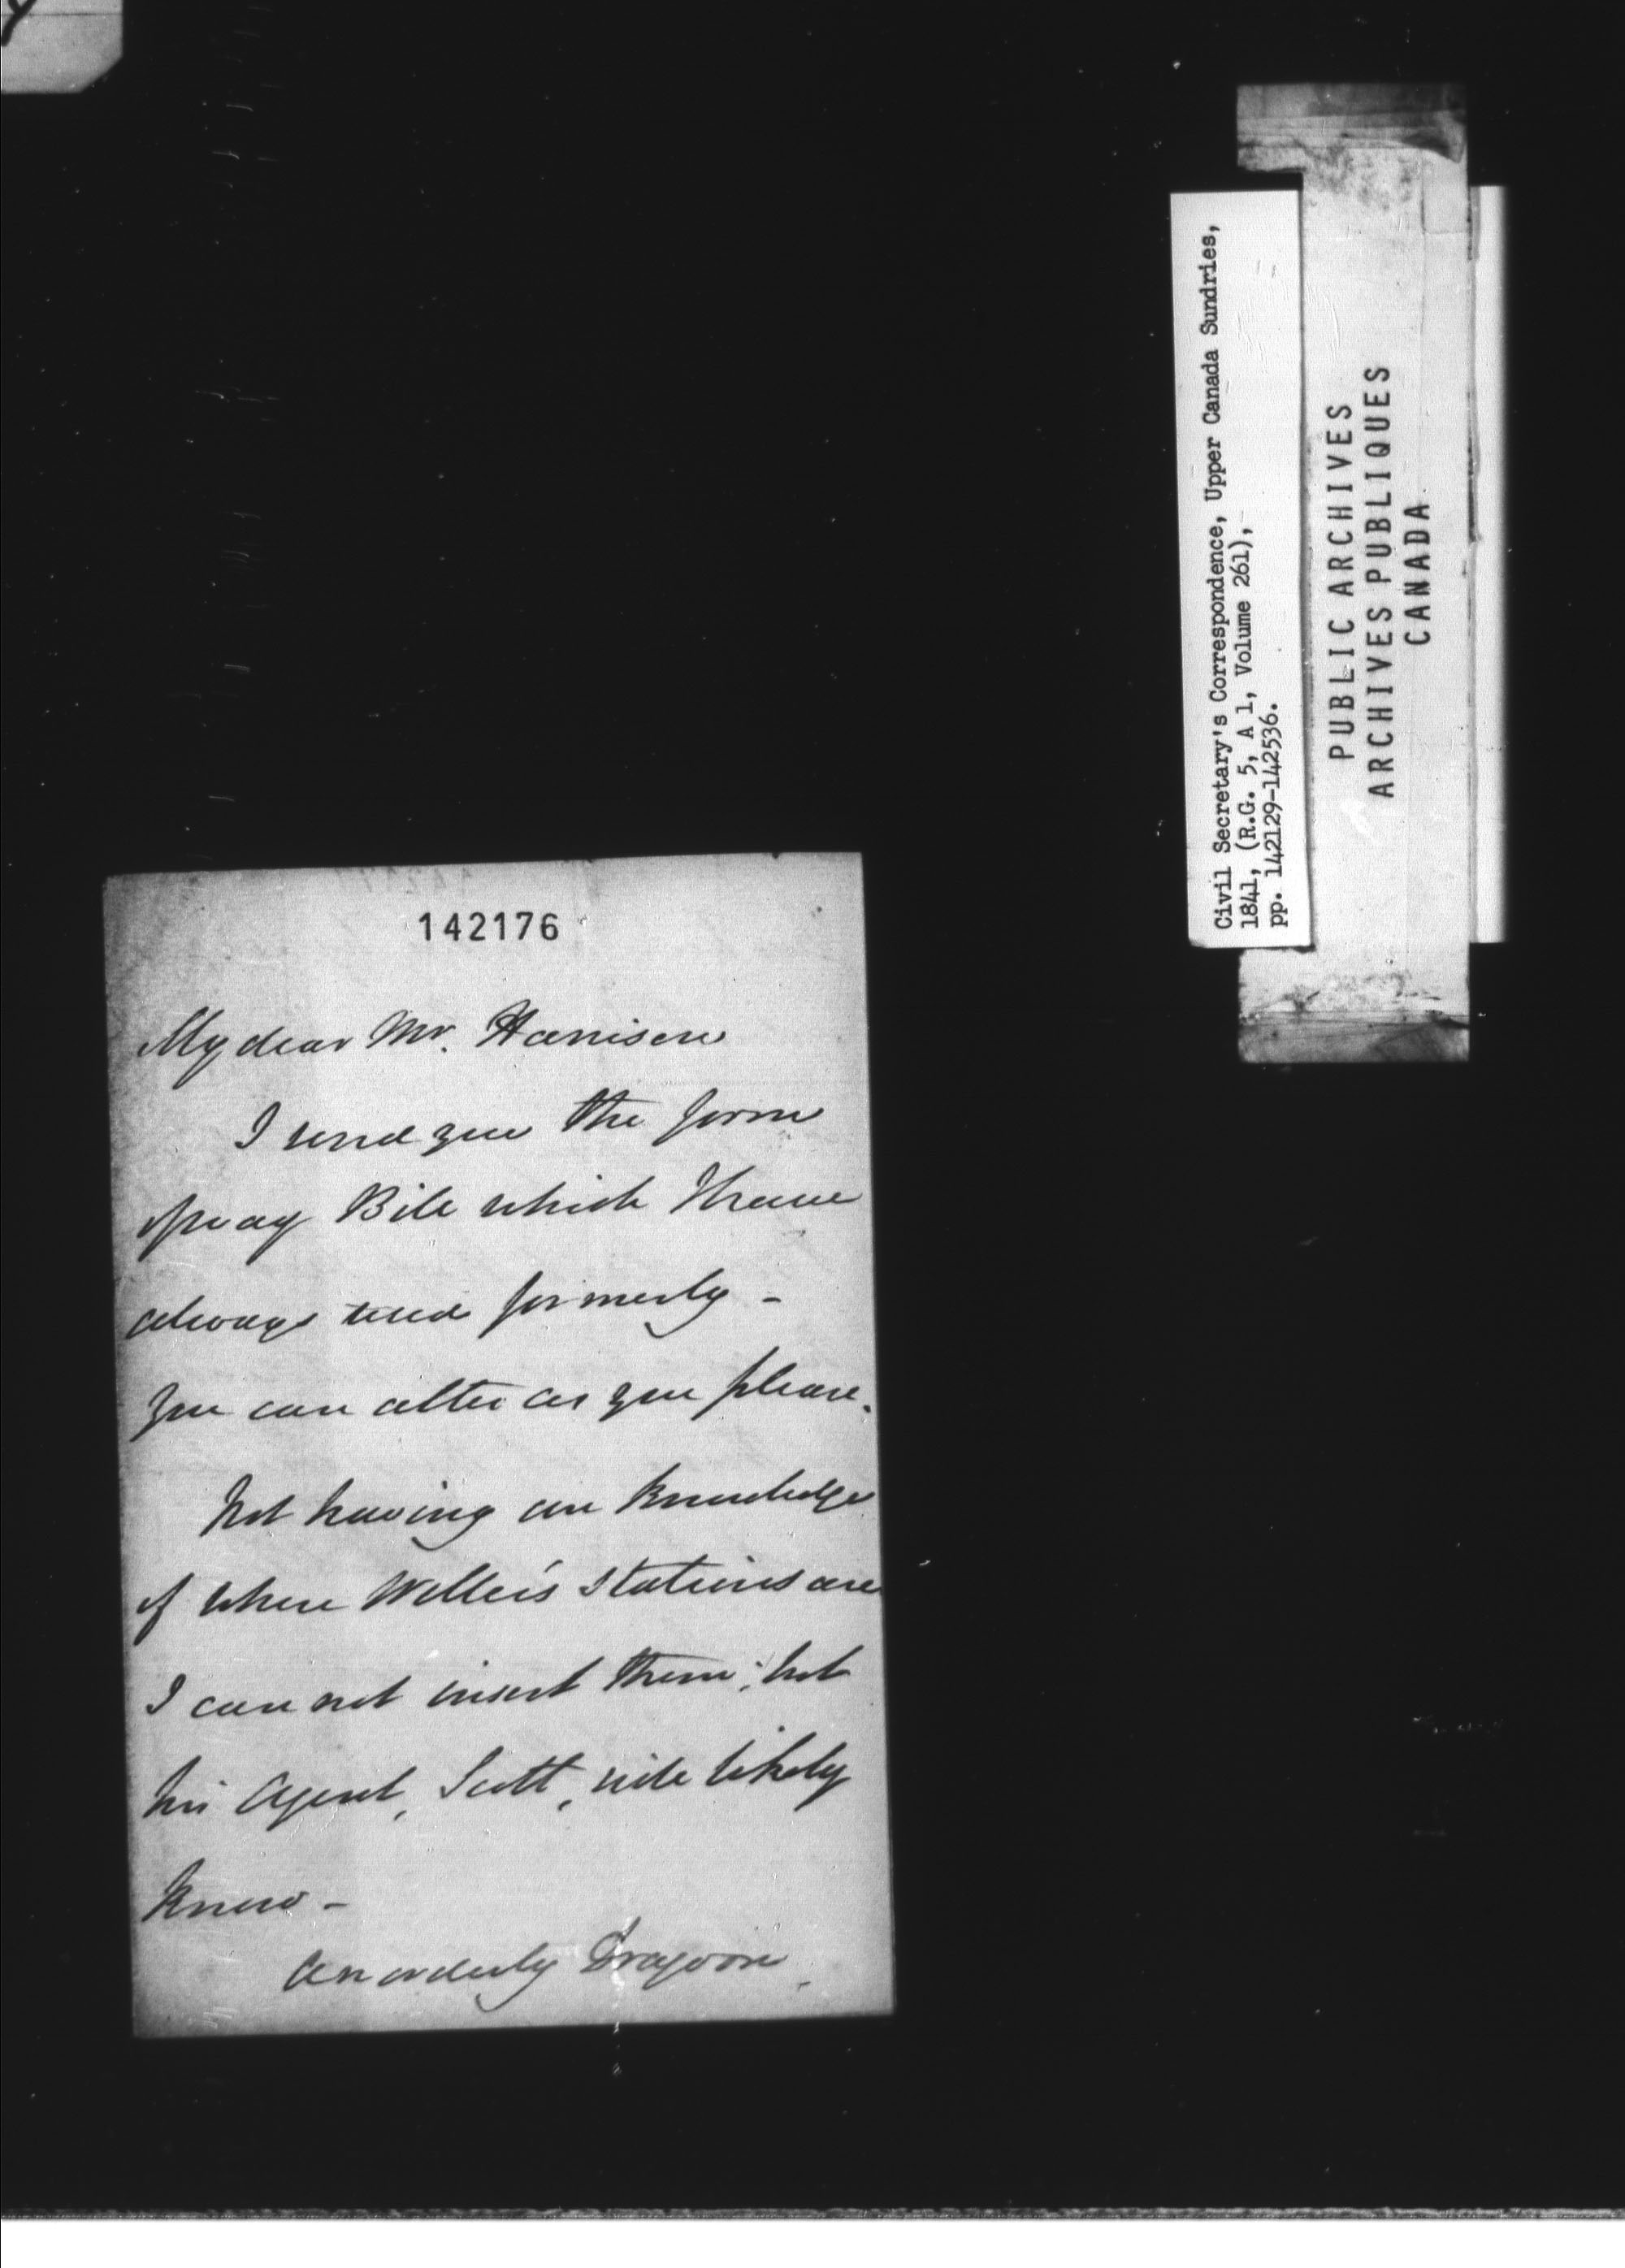 142176
My dear Mr. Harrison
I send you the form
of way Bill which I have
always used formerly -
you can alter as you please.
Not having an knowledge
of where Weller's stations are
I can not insert them; but
his Agent, Scott, will likely
know -
An orderly Dragoon
Civil Secretary's Correspondence, Upper Canada Sundries,
1841, (R.G. 5, A 1, Volume 261),
pp. 142129-142536.
PUBLIC ARCHIVES
ARCHIVES PUBLIQUES
CANADA